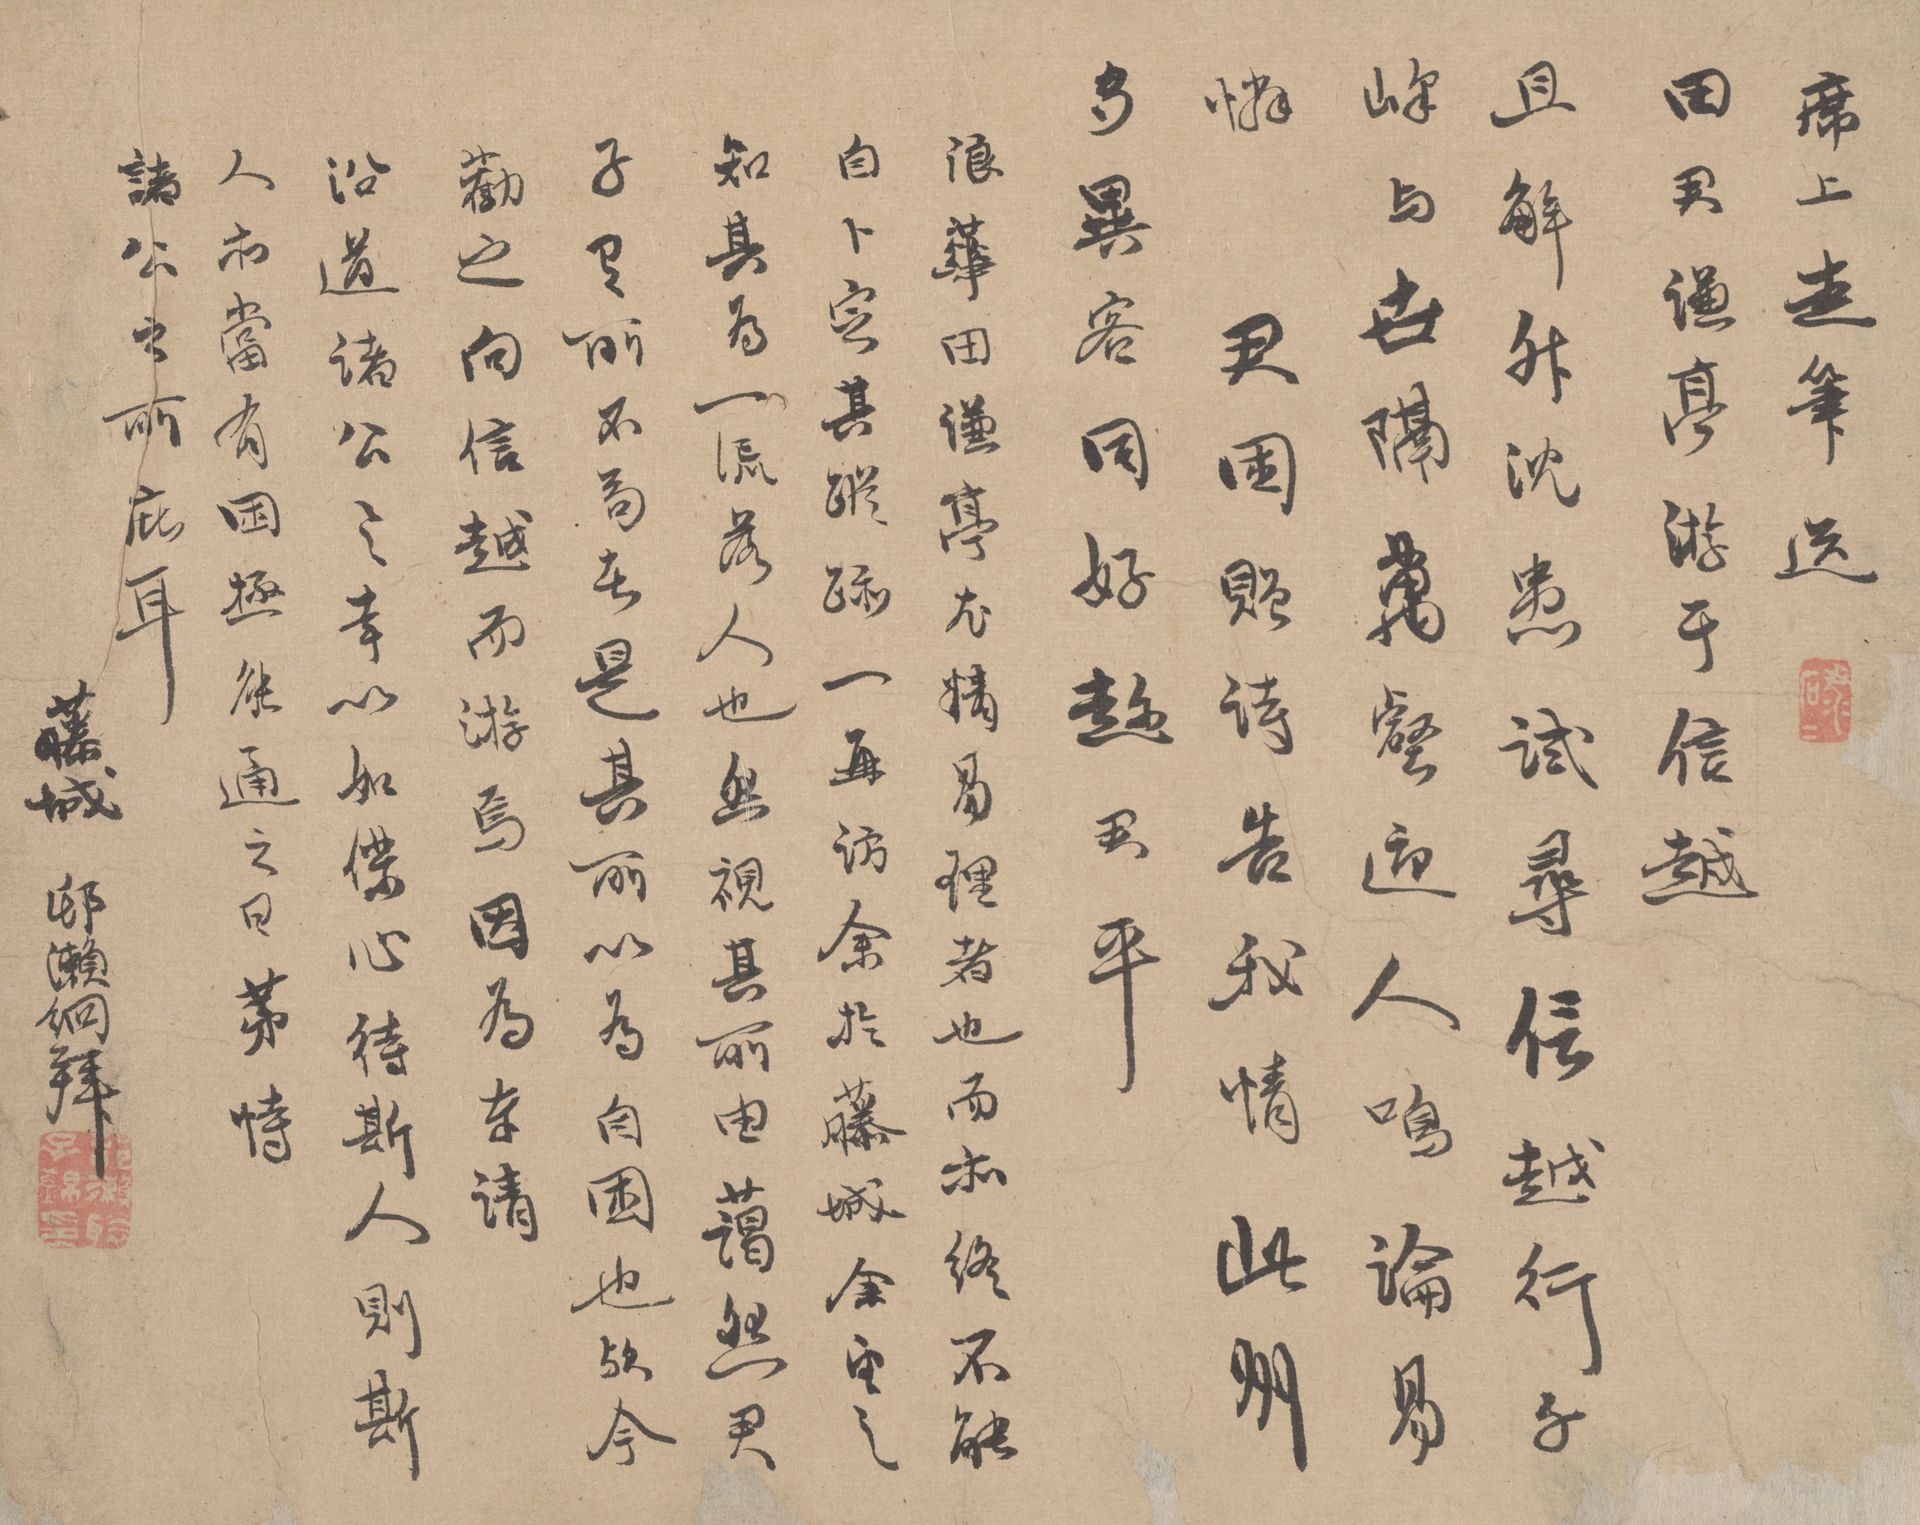 席上走筆送
田君謙亭游于信越
且解舟沈患試尋信越行千
峰与世隔萬壑迎人鳴論易
憐君困賦詩告我情此州
多異客同好趂君平
浪華田謙亭尤精易理者也而亦終不能
自卜定其蹤跡一再訪余於藤城余受之
知其為一流落人也然視其所由藹然君
子有所不為者是其所以為自困也欤今
勸之向信越而游焉因為李請
沿道諸公之幸以如傑心待斯人則斯
人亦當有困極能通之日第恃
諸公之所庇耳
藤城 邨瀬絅拜